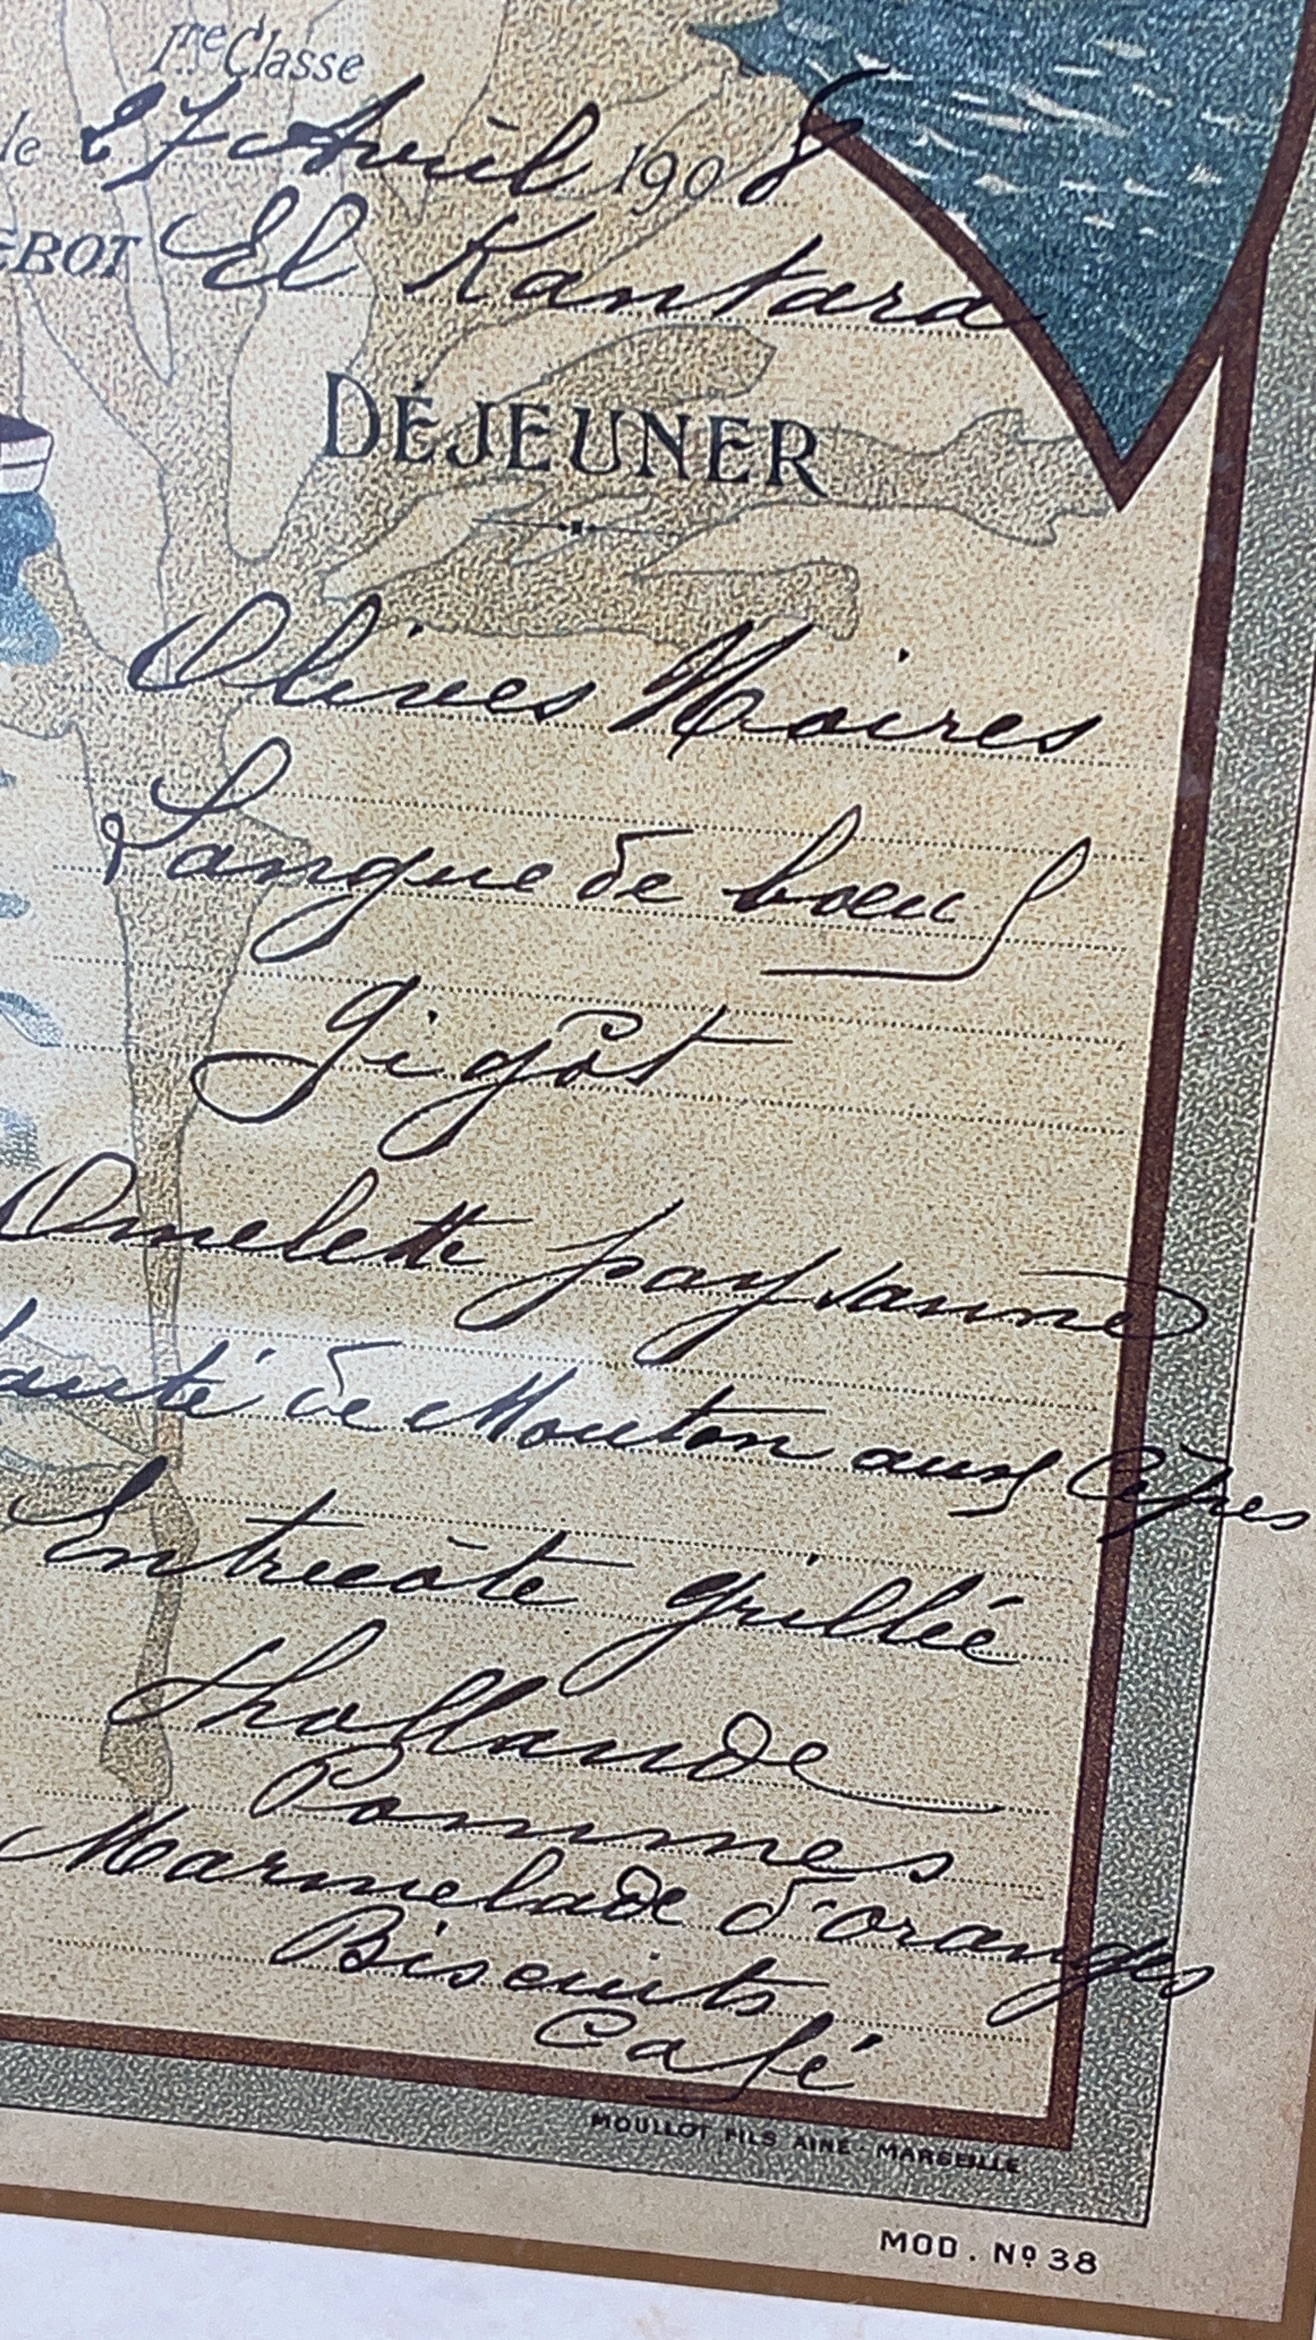 Ire Classe
le 27 Avril 1908
EBOT El Kantara
DÉJEUNER
Olives Noires
Langue de boeuf
Gigôt
Omelette paysanne
Sauté de Mouton aux Cèpes
Entrecôte grillée
Hollande
Pommes
Marmelade d'oranges
Biscuits
Café
MOULLOT FILS AINÉ - MARSEILLE
MOD. Nº 38